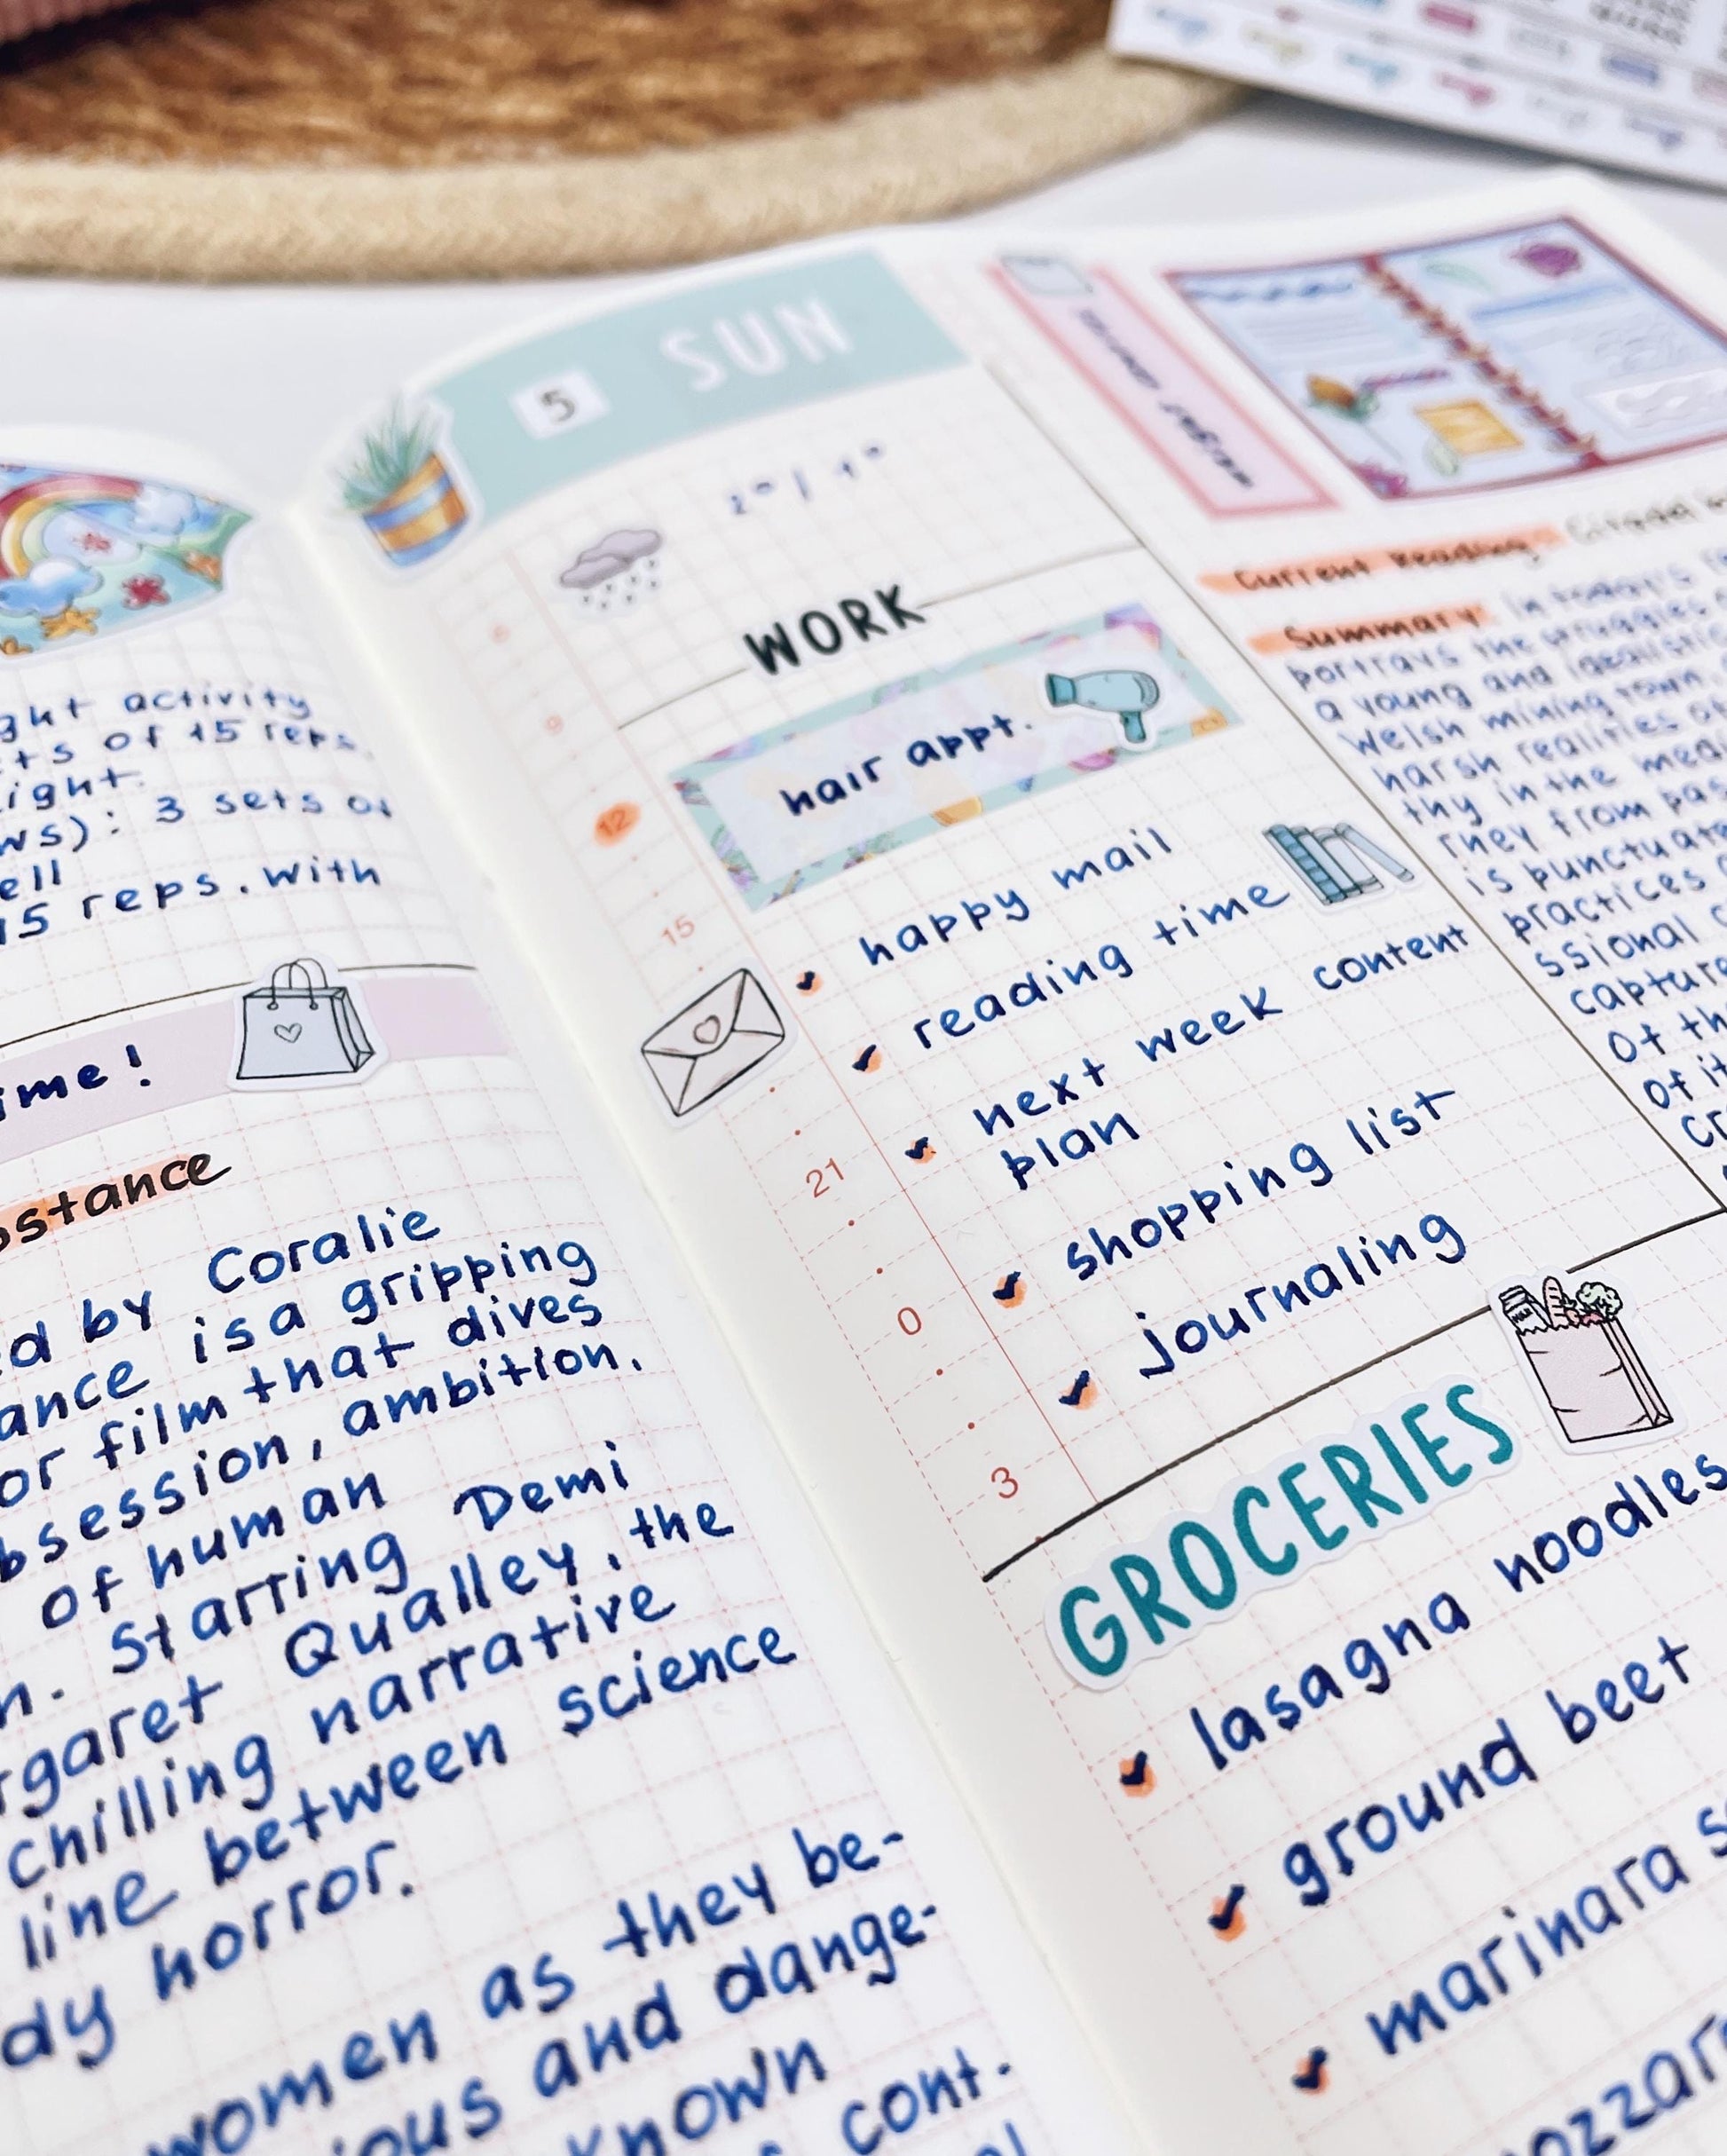 ght activity
ts of 15 reps.
ight.
ws): 3 sets of
ell
15 reps. with
ime!
bstance
ed by Coralie
ance is a gripping
or film that dives
bsession, ambition,
of human
n. Starring Demi
rgaret Qualley, the
chilling narrative
line between science
dy horror.
women as they be-
ious and dange-
known
cont.
5 SUN
6
9
12
15
21
0
3
WORK
hair appt.
happy mail
reading time
next week content
plan
shopping list
journaling
GROCERIES
lasagna noodles
ground beet
marinara s
ozzar
Current Reading: Citadel
Summary: In today's
portrays the struggles
a young and idealistic
Welsh mining town.
harsh realities of
thy in the medi
They from pas
is punctuate
practices
ssional c
capture
of th
of it
cr